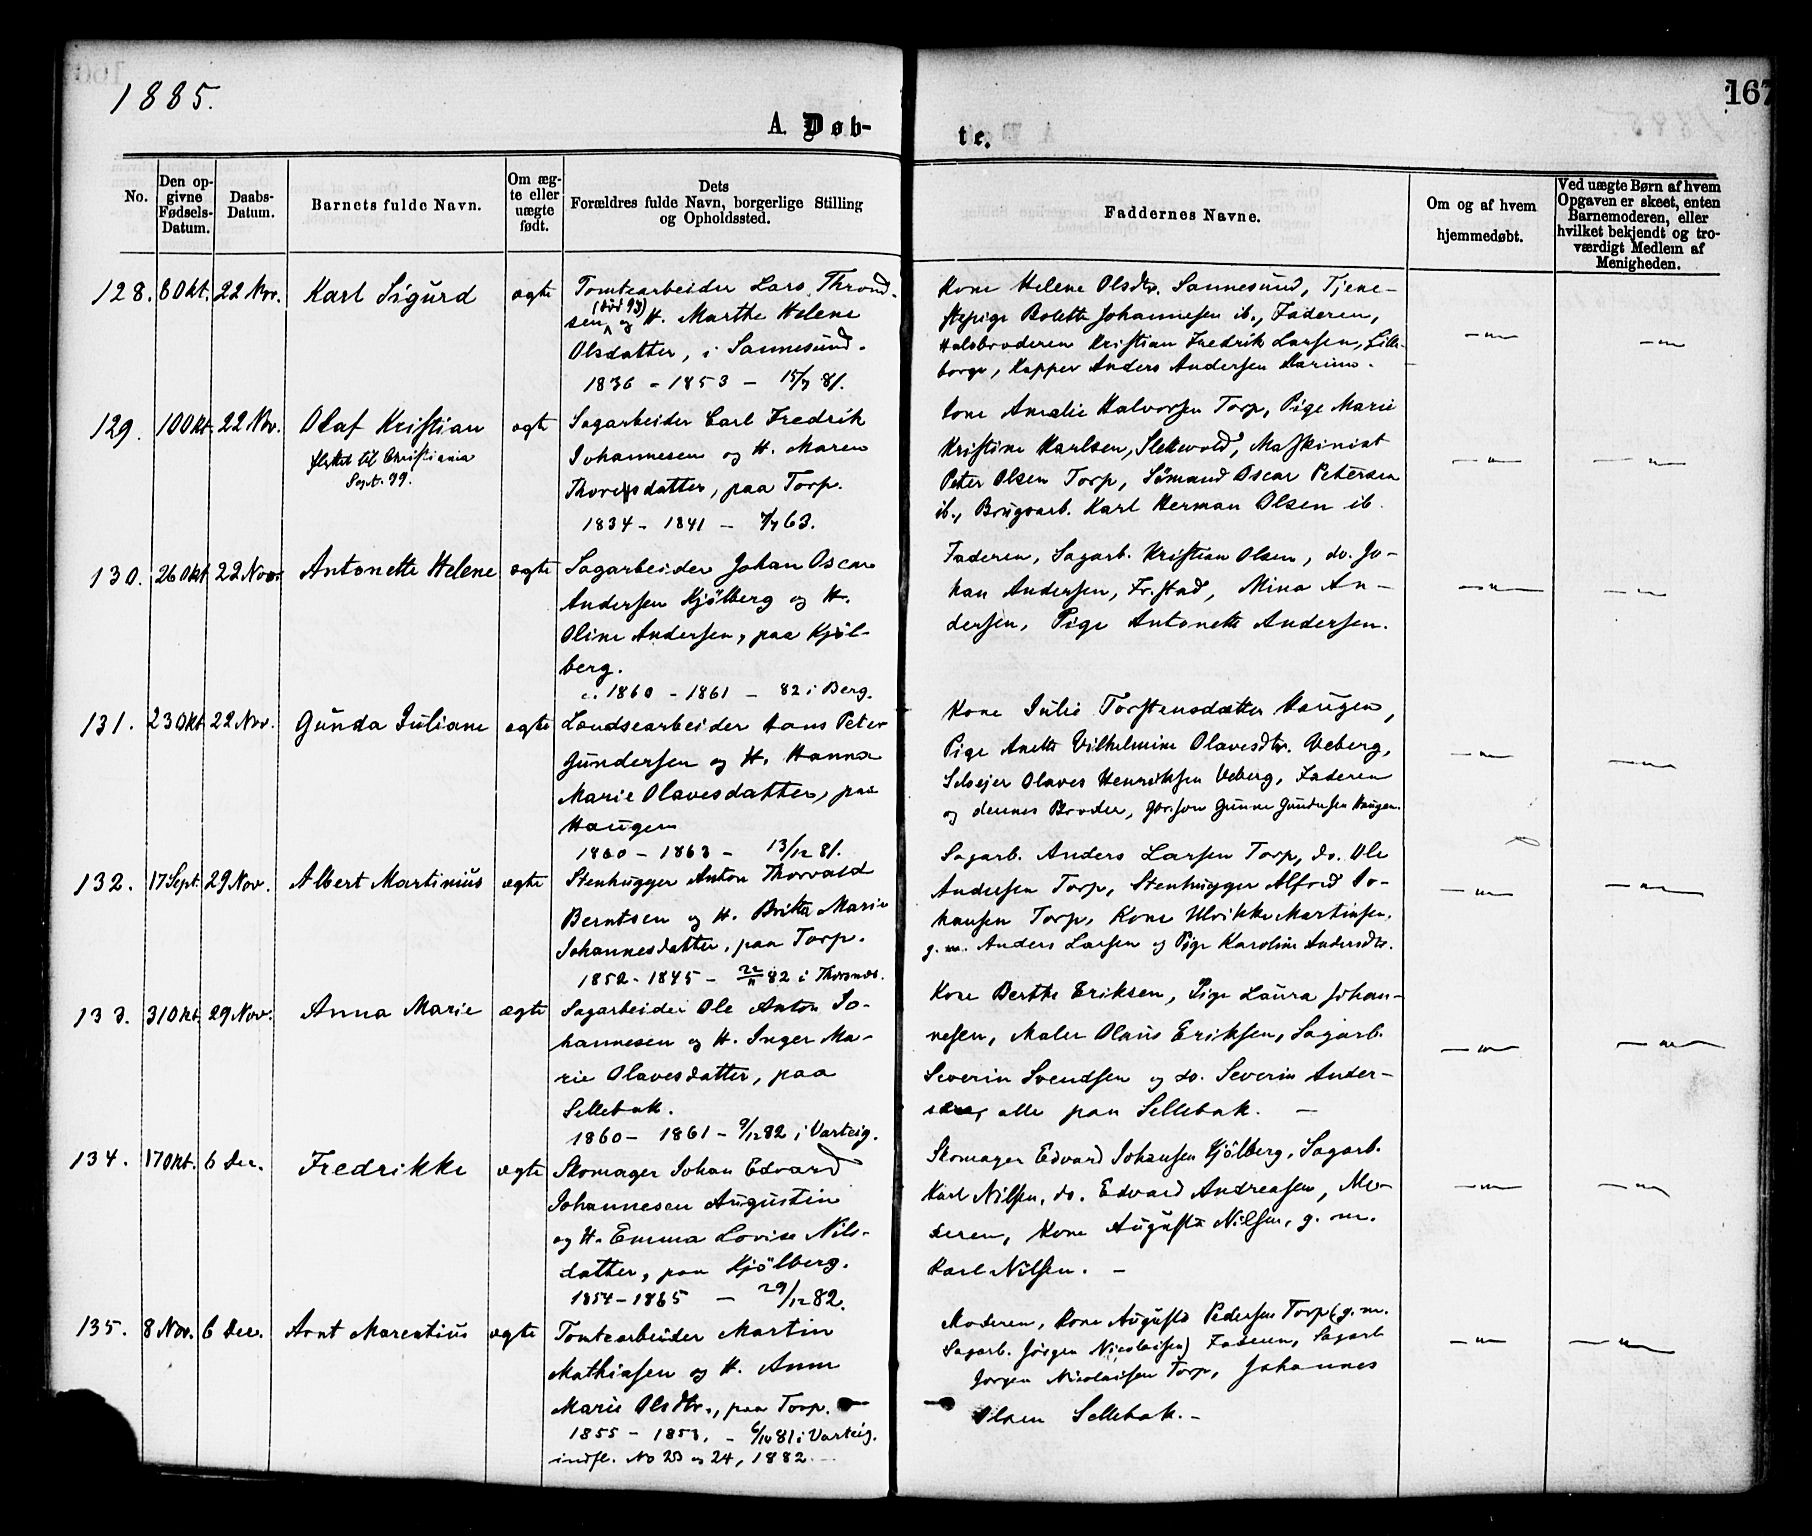 1885.
167
A. Døb-
te.
No.
Den op-
givne
Fødsels-
Datum.
Daabs-
Datum.
Barnets fulde Navn.
Om æg-
te eller
uægte
født.
Dets
Forældres fulde Navn, borgerlige Stilling
og Opholdssted.
Faddernes Navne.
Om og af hvem
hjemmedøbt.
Ved uægte Børn af hvem
Opgaven er skeet, enten
Barnemoderen, eller
hvilket bekjendt og tro-
værdigt Medlem af
Menigheden.
128. 6 Okt. 22 Nov. Karl Sigurd ægte
Tomtearbeider Lars Thrond-
sen (død 93) og H. Marthe Helene
Olsdatter, i Sannesund.
1836 - 1853 - 15/7 81.
Kone Helene Olsdtr. Sannesund, Tjene-
stepige Bolette Johannesen ib., Faderen,
Halvbroderen Kristian Fredrik Larsen, Lille-
borge, Anders Andersen
129. 10 Okt. 22 Nov. Olaf Kristian ægte
flyttet til Christiania
Sept. 99.
Sagarbeider Carl Fredrik
Johannesen og H. Maren
Thorersdatter, paa Torp.
1834 - 1841 - 63.
Kone Amalie Halvorsen Torp, Pige Marie
Kristine Karlsen, Slettevold, Maskinist
Peter Olsen Torp, Sömand Oscar Petersen
ib., Brugsarb. Karl Herman Olsen ib.
130. 26 Okt 22 Nov. Antonette Helene ægte
Sagarbeider Johan Oscar
Andersen Kjölberg og H.
Oline Andersen, paa Kjøl-
berg.
c. 1860 - 1861 - 82 i Berg.
Faderen, Sagarb. Kristian Olsen, do. Jo-
han Andersen, Fr.stad, Mina An-
dersen, Pige Antonette Andersen.
131. 23 Okt 22 Nov. Gunda Juliane ægte
Loudsearbeider Hans Peter
Gundersen og H. Hanna
Marie Olavesdatter, paa
Haugen
1860 - 1863 - 13/12 81.
Kone Julie Torstensdatter Haugen,
Pige Anette Vilhelmine Olavesdtr. Veberg,
Selvejer Olaves Henriksen Veberg, Faderen
og dennes Broder, Gbr.søn Gunne Gundersen Haugen.
132. 17 Sept. 29 Nov. Albert Martinius ægte
Stenhugger Anton Thorvald
Berntsen og H. Britta Marie
Johannesdatter, paa Torp.
1852 - 1845 - 22/11 82 i Thorsnæs.
Sagarb. Anders Larsen Torp, do. Ole
Andersen Torp, Stenhugger Alfred Jo-
hansen Torp, Kone Ulrikke Martinsen,
g. m. Anders Larsen og Pige Karoline Andersdtr.
133. 31 Okt. 29 Nov. Anna Marie ægte
Sagarbeider Ole Anton Jo-
hannesen og H. Inger Ma-
rie Olavesdatter, paa
Sellebak.
1860 - 1861 - 9/12 82 i Varteig.
Kone Berthe Eriksen, Pige Laura Johan-
nesen, Maler Olaus Eriksen, Sagarb.
Severin Svendsen og do. Severin Ander-
sen, alle paa Sellebak. -
134. 17 Okt. 6 Dec. Fredrikke ægte
Skomager Johan Edvard
Johannesen Augustin
og H. Emma Lovise Nils-
datter, paa Kjölberg.
1854 - 1865 - 29/12 82.
Skomager Edvard Johansen Kjölberg, Sagarb.
Karl Nilsen, do. Edvard Andreasen, Mo-
deren, Kone Augusta Nilsen, g. m.
Karl Nilsen. -
135. 8 Nov. 6 Dec. Arnt Marentius ægte
Tomtearbeider Martin
Mathiasen og H. Anne
Marie Olsdtr., paa Torp.
1855 - 1853. - 6/10 81 i Varteig.
indfl. No 23 og 24, 1882.
Moderen, Kone Augusta Pedersen Torp (g. m.
Sagarb. Jörgen Nicolaisen) Faderen, Sagarb
Jörgen Nicolaisen Torp, Johannes
Olsen Sellebak. -